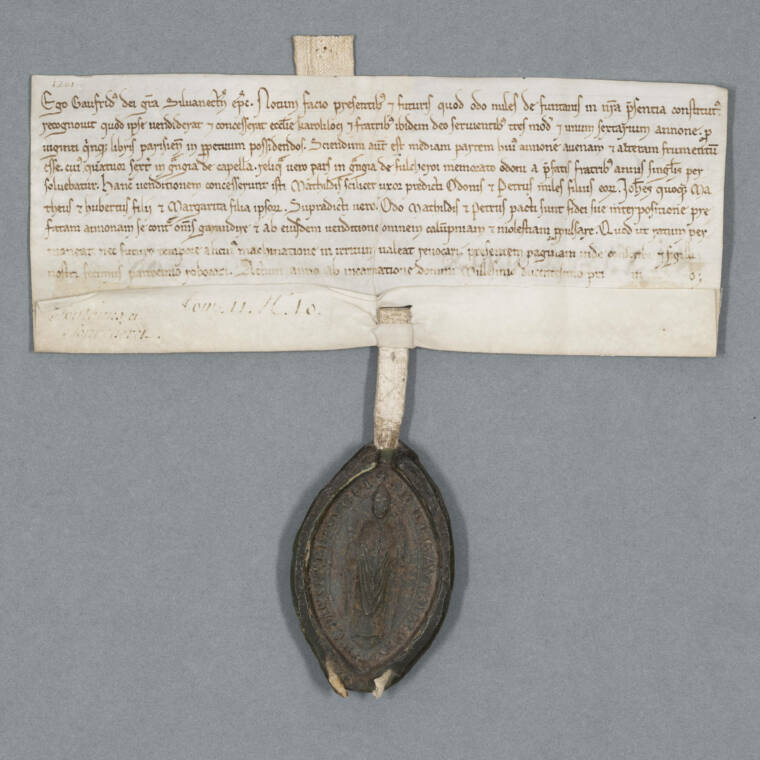 1201
Ego Gaufrid' dei gra Silvanect' epc. Notum facio presentib' & futuris quod odo miles de funtanis in nra psentia constitut'
recognovit quod ipse vendiderat & concesserat ecclie karoliloci & fratrib' ibidem deo servientib' tres mod' & unum sextarium annone. p
viginti libris parisien in ppetuum possidendos. Sciendum aut est mediam partem hui' annone avenam & alteram frumentum
esse. cui' quatuor sext' in gngia de capella. reliq' vero pars in gngia de fulcherei memorato odoni a pfatis fratrib' annis singlis per
solvebatur. Hanc venditionem concesserunt isti Mathildis scilicet uxor predicti Odonis & Petrus miles filius eor. Johes quoq' Ma
theus & hubertus filii & Margarita filia ipsor. Supradicti vero. Odo Mathildis & Petrus pacti sunt fidei sue interpositione pre
fatam annonam se contra oms garandire & ab eiusdem venditione omnem calumpniam & molestiam ppulsare. Quod ut ratum per
maneat nec futuro tempore alicui' machinatione in irritum valeat revocari presentem paginam inde & sigilli
nostri fecimus patrocinio roborari. Actum anno ab incarnatione domini Millesimo ducentesimo pri m o;
Tom. 11. N. 10.